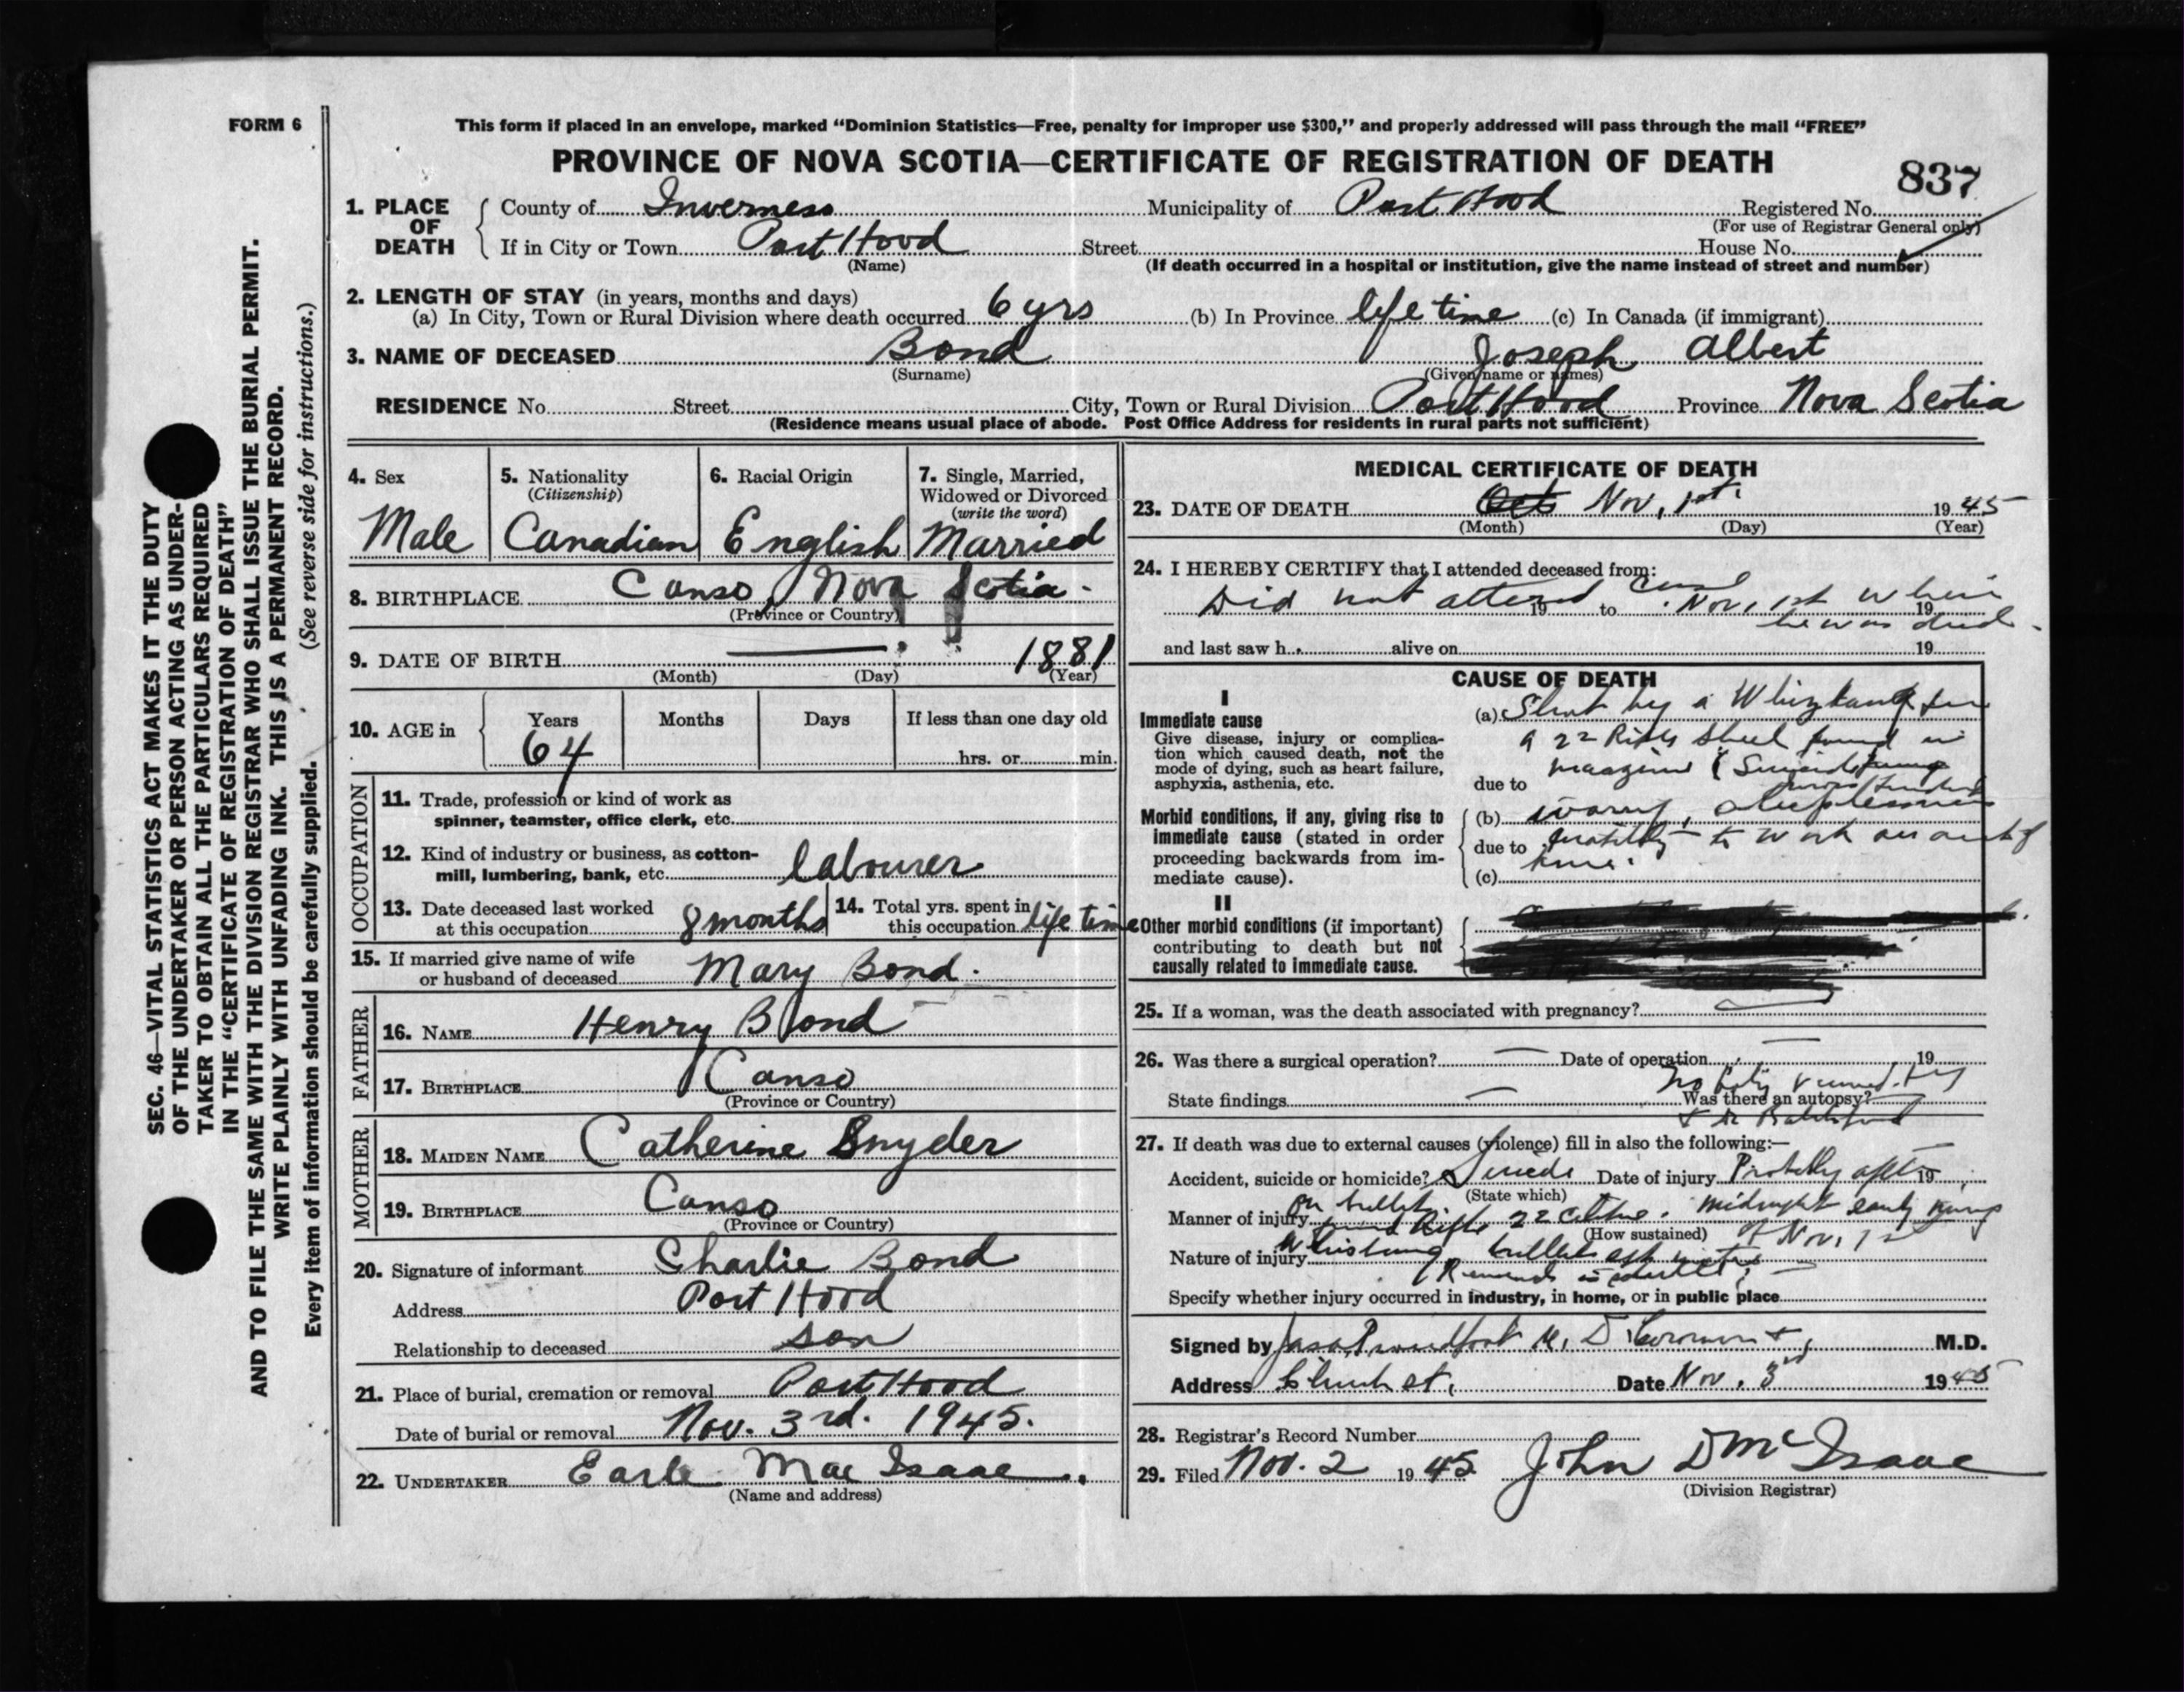 FORM 6
This form if placed in an envelope, marked "Dominion Statistics—Free, penalty for improper use $300," and properly addressed will pass through the mail "FREE"
PROVINCE OF NOVA SCOTIA—CERTIFICATE OF REGISTRATION OF DEATH
837
SEC. 46—VITAL STATISTICS ACT MAKES IT THE DUTY
OF THE UNDERTAKER OR PERSON ACTING AS UNDER-
TAKER TO OBTAIN ALL THE PARTICULARS REQUIRED
IN THE "CERTIFICATE OF REGISTRATION OF DEATH"
AND TO FILE THE SAME WITH THE DIVISION REGISTRAR WHO SHALL ISSUE THE BURIAL PERMIT.
WRITE PLAINLY WITH UNFADING INK. THIS IS A PERMANENT RECORD.
Every item of information should be carefully supplied. (See reverse side for instructions.)
1. PLACE OF DEATH
County of Inverness Municipality of Port Hood Registered No.
(For use of Registrar General only)
If in City or Town Port Hood Street House No.
(Name) (If death occurred in a hospital or institution, give the name instead of street and number)
2. LENGTH OF STAY (in years, months and days)
(a) In City, Town or Rural Division where death occurred 6 yrs (b) In Province life time (c) In Canada (if immigrant)
3. NAME OF DECEASED Bond Joseph Albert
(Surname) (Given name or names)
RESIDENCE No. Street City, Town or Rural Division Port Hood Province Nova Scotia
(Residence means usual place of abode. Post Office Address for residents in rural parts not sufficient)
4. Sex
Male
5. Nationality
(Citizenship)
Canadian
6. Racial Origin
English
7. Single, Married,
Widowed or Divorced
(write the word)
Married
8. BIRTHPLACE Canso, Nova Scotia
(Province or Country)
9. DATE OF BIRTH 1881
(Month) (Day) (Year)
10. AGE in
Years Months Days If less than one day old
64 hrs. or min.
OCCUPATION
11. Trade, profession or kind of work as
spinner, teamster, office clerk, etc.
12. Kind of industry or business, as cotton-
mill, lumbering, bank, etc. labourer
13. Date deceased last worked
at this occupation 8 months
14. Total yrs. spent in
this occupation life time
15. If married give name of wife
or husband of deceased Mary Bond.
FATHER
16. NAME Henry Bond
17. BIRTHPLACE Canso
(Province or Country)
MOTHER
18. MAIDEN NAME Catherine Snyder
19. BIRTHPLACE Canso
(Province or Country)
20. Signature of informant Charlie Bond
Address Port Hood
Relationship to deceased son
21. Place of burial, cremation or removal Port Hood
Date of burial or removal Nov. 3rd. 1945.
22. UNDERTAKER Earle MacIsaac
(Name and address)
MEDICAL CERTIFICATE OF DEATH
23. DATE OF DEATH Oct Nov, 1st. 1945
(Month) (Day) (Year)
24. I HEREBY CERTIFY that I attended deceased from:
Did not attend 19 to Nov, 1st when 19
he was dead.
and last saw h alive on 19
CAUSE OF DEATH
I
Immediate cause
Give disease, injury or complica-
tion which caused death, not the
mode of dying, such as heart failure,
asphyxia, asthenia, etc.
(a) Shot by a
22 Rifle found in
due to
Morbid conditions, if any, giving rise to
immediate cause (stated in order
proceeding backwards from im-
mediate cause).
(b) worry, sleeplessness
due to to work
(c)
II
Other morbid conditions (if important)
contributing to death but not
causally related to immediate cause.
25. If a woman, was the death associated with pregnancy?
26. Was there a surgical operation? Date of operation 19
State findings Was there an autopsy?
27. If death was due to external causes (violence) fill in also the following:—
Accident, suicide or homicide? Suicide Date of injury Probably aft 19
(State which)
Manner of injury Rifle 22 midnight early
(How sustained) of Nov, 1st
Nature of injury bullet
Specify whether injury occurred in industry, in home, or in public place
Signed by M.D.
Address Date Nov. 3rd 1945
28. Registrar's Record Number
29. Filed Nov. 2 1945 John D McIsaac
(Division Registrar)